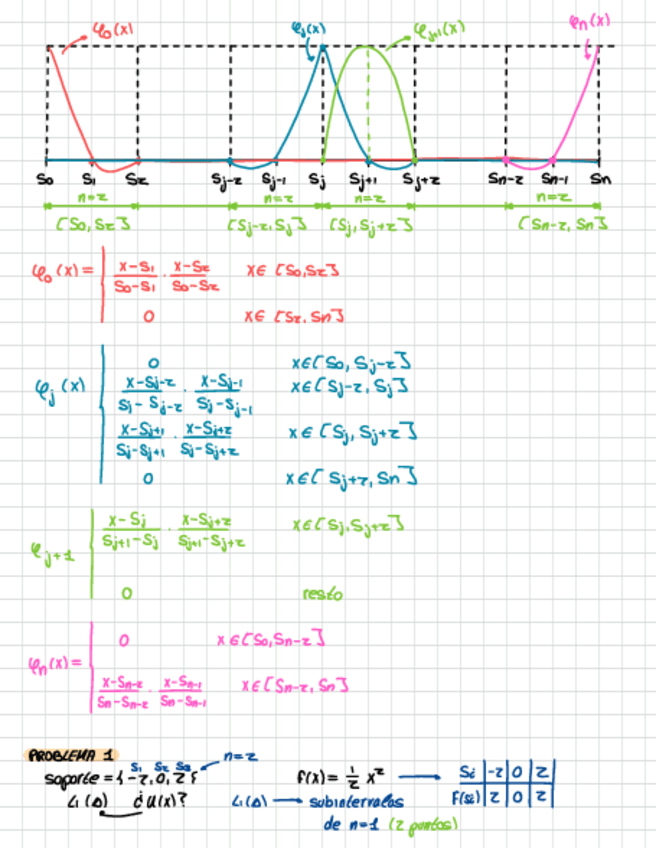 φ₀(x) φj(x) φj+1(x) φn(x)
S₀ S₁ S₂ Sj-2 Sj-1 Sj Sj+1 Sj+2 Sn-2 Sn-1 Sn
n=2 n=2 n=2 n=2
[S₀, S₂] [Sj-2, Sj] [Sj, Sj+2] [Sn-2, Sn]
φ₀(x) = | (x-S₁)/(S₀-S₁) · (x-S₂)/(S₀-S₂) x∈[S₀,S₂]
0 x∈[S₂,Sn]
φj(x) | 0 x∈[S₀, Sj-2]
(x-Sj-2)/(Sj-Sj-2) · (x-Sj-1)/(Sj-Sj-1) x∈[Sj-2, Sj]
(x-Sj+1)/(Sj-Sj+1) · (x-Sj+2)/(Sj-Sj+2) x∈[Sj, Sj+2]
0 x∈[Sj+2, Sn]
φj+1 | (x-Sj)/(Sj+1-Sj) · (x-Sj+2)/(Sj+1-Sj+2) x∈[Sj,Sj+2]
0 resto
φn(x) = | 0 x∈[S₀,Sn-2]
(x-Sn-2)/(Sn-Sn-2) · (x-Sn-1)/(Sn-Sn-1) x∈[Sn-2, Sn]
PROBLEMA 1
S₁ S₂ S₃ n=2
soporte = {-2,0,2} f(x) = 1/2 x² → Si | -2 | 0 | 2
L₁(Δ) ¿u(x)? L₁(Δ) → subintervalos F(si) | 2 | 0 | 2
de n=1 (2 puntos)